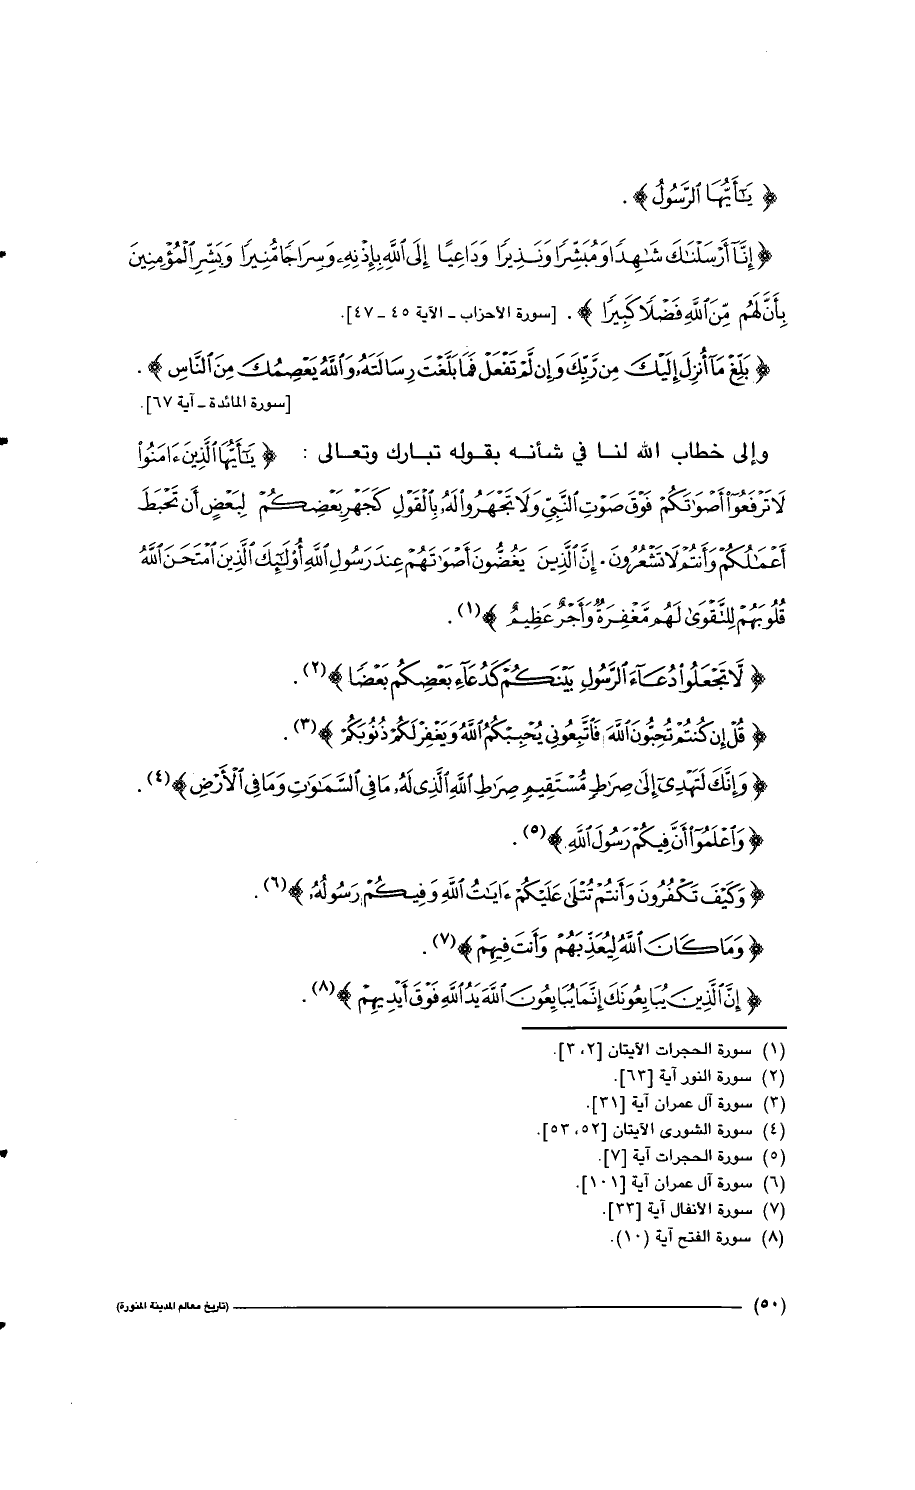 ﴿ يَٰٓأَيُّهَا ٱلرَّسُولُ ﴾ .
﴿ إِنَّآ أَرْسَلْنَٰكَ شَٰهِدًا وَمُبَشِّرًا وَنَذِيرًا وَدَاعِيًا إِلَى ٱللَّهِ بِإِذْنِهِۦ وَسِرَاجًا مُّنِيرًا وَبَشِّرِ ٱلْمُؤْمِنِينَ
بِأَنَّ لَهُم مِّنَ ٱللَّهِ فَضْلًا كَبِيرًا ﴾ . [سورة الأحزاب ـ الآية ٤٥ ـ ٤٧].
﴿ بَلِّغْ مَآ أُنزِلَ إِلَيْكَ مِن رَّبِّكَ وَإِن لَّمْ تَفْعَلْ فَمَا بَلَّغْتَ رِسَالَتَهُۥ وَٱللَّهُ يَعْصِمُكَ مِنَ ٱلنَّاسِ ﴾ .
[سورة المائدة ـ آية ٦٧].
وإلى خطاب الله لنا في شأنه بقوله تبارك وتعالى : ﴿ يَٰٓأَيُّهَا ٱلَّذِينَ ءَامَنُوا۟
لَا تَرْفَعُوٓا۟ أَصْوَٰتَكُمْ فَوْقَ صَوْتِ ٱلنَّبِىِّ وَلَا تَجْهَرُوا۟ لَهُۥ بِٱلْقَوْلِ كَجَهْرِ بَعْضِكُمْ لِبَعْضٍ أَن تَحْبَطَ
أَعْمَٰلُكُمْ وَأَنتُمْ لَا تَشْعُرُونَ . إِنَّ ٱلَّذِينَ يَغُضُّونَ أَصْوَٰتَهُمْ عِندَ رَسُولِ ٱللَّهِ أُو۟لَٰٓئِكَ ٱلَّذِينَ ٱمْتَحَنَ ٱللَّهُ
قُلُوبَهُمْ لِلتَّقْوَىٰ لَهُم مَّغْفِرَةٌ وَأَجْرٌ عَظِيمٌ ﴾(١) .
﴿ لَّا تَجْعَلُوا۟ دُعَآءَ ٱلرَّسُولِ بَيْنَكُمْ كَدُعَآءِ بَعْضِكُم بَعْضًا ﴾(٢) .
﴿ قُلْ إِن كُنتُمْ تُحِبُّونَ ٱللَّهَ فَٱتَّبِعُونِى يُحْبِبْكُمُ ٱللَّهُ وَيَغْفِرْ لَكُمْ ذُنُوبَكُمْ ﴾(٣) .
﴿ وَإِنَّكَ لَتَهْدِىٓ إِلَىٰ صِرَٰطٍ مُّسْتَقِيمٍ صِرَٰطِ ٱللَّهِ ٱلَّذِى لَهُۥ مَا فِى ٱلسَّمَٰوَٰتِ وَمَا فِى ٱلْأَرْضِ ﴾(٤) .
﴿ وَٱعْلَمُوٓا۟ أَنَّ فِيكُمْ رَسُولَ ٱللَّهِ ﴾(٥) .
﴿ وَكَيْفَ تَكْفُرُونَ وَأَنتُمْ تُتْلَىٰ عَلَيْكُمْ ءَايَٰتُ ٱللَّهِ وَفِيكُمْ رَسُولُهُۥ ﴾(٦) .
﴿ وَمَا كَانَ ٱللَّهُ لِيُعَذِّبَهُمْ وَأَنتَ فِيهِمْ ﴾(٧) .
﴿ إِنَّ ٱلَّذِينَ يُبَايِعُونَكَ إِنَّمَا يُبَايِعُونَ ٱللَّهَ يَدُ ٱللَّهِ فَوْقَ أَيْدِيهِمْ ﴾(٨) .
(١) سورة الحجرات الآيتان [٢، ٣].
(٢) سورة النور آية [٦٣].
(٣) سورة آل عمران آية [٣١].
(٤) سورة الشورى الآيتان [٥٢، ٥٣].
(٥) سورة الحجرات آية [٧].
(٦) سورة آل عمران آية [١٠١].
(٧) سورة الأنفال آية [٣٣].
(٨) سورة الفتح آية (١٠).
(٥٠) (تاريخ معالم المدينة المنورة)